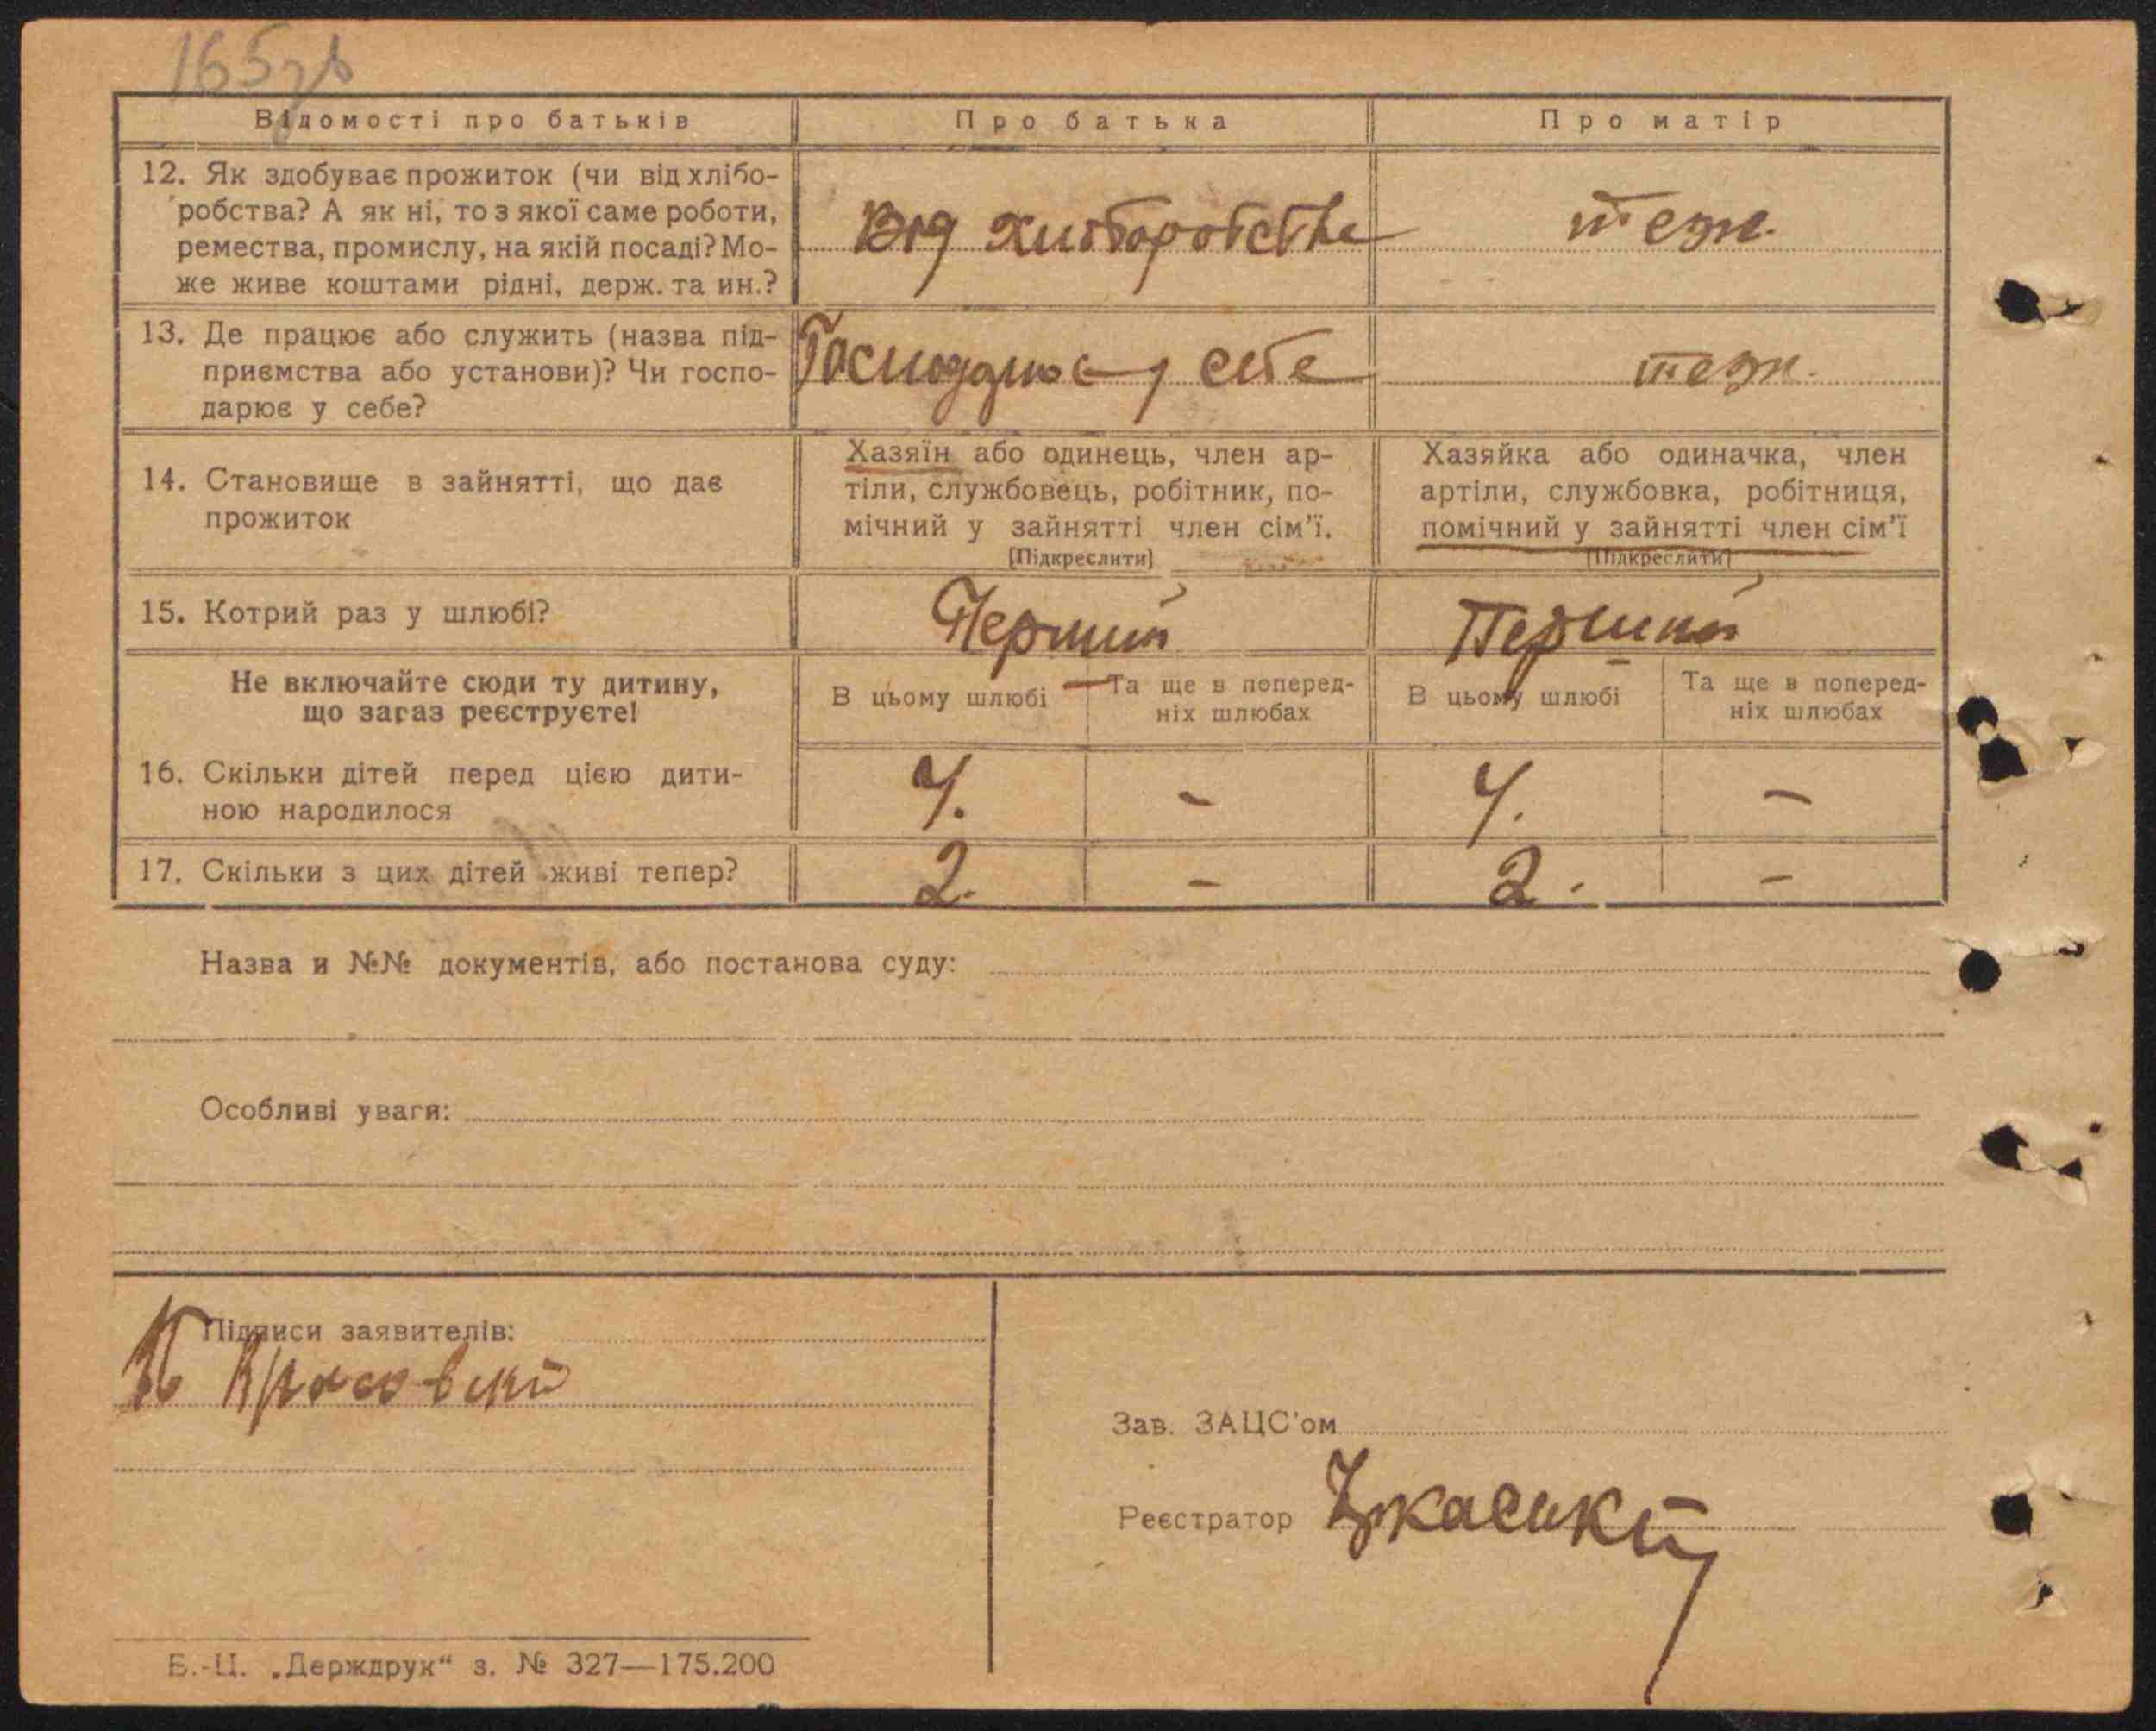 165зв
Відомості про батьків
Про батька
Про матір
12. Як здобуває прожиток (чи від хлібо-
робства? А як ні, то з якої саме роботи,
ремества, промислу, на якій посаді? Мо-
же живе коштами рідні, держ. та ин.?
Від хліборобства
теж.
13. Де працює або служить (назва під-
приємства або установи)? Чи госпо-
дарює у себе?
у себе
теж.
14. Становище в зайнятті, що дає
прожиток
Хазяїн або одинець, член ар-
тіли, службовець, робітник, по-
мічний у зайнятті член сім'ї.
[Підкреслити]
Хазяйка або одиначка, член
артіли, службовка, робітниця,
помічний у зайнятті член сім'ї
[Підкреслити]
15. Котрий раз у шлюбі?
Перший
Перший
Не включайте сюди ту дитину,
що зараз реєструєте!
В цьому шлюбі
Та ще в поперед-
ніх шлюбах
В цьому шлюбі
Та ще в поперед-
ніх шлюбах
16. Скільки дітей перед цією дити-
ною народилося
4. - 4. -
17. Скільки з цих дітей живі тепер?
2. - 2. -
Назва и №№ документів, або постанова суду:
Особливі уваги:
Підписи заявителів:
Красовский
Зав. ЗАЦС'ом
Реєстратор
Б.-Ц. „Держдрук“ з. № 327—175.200